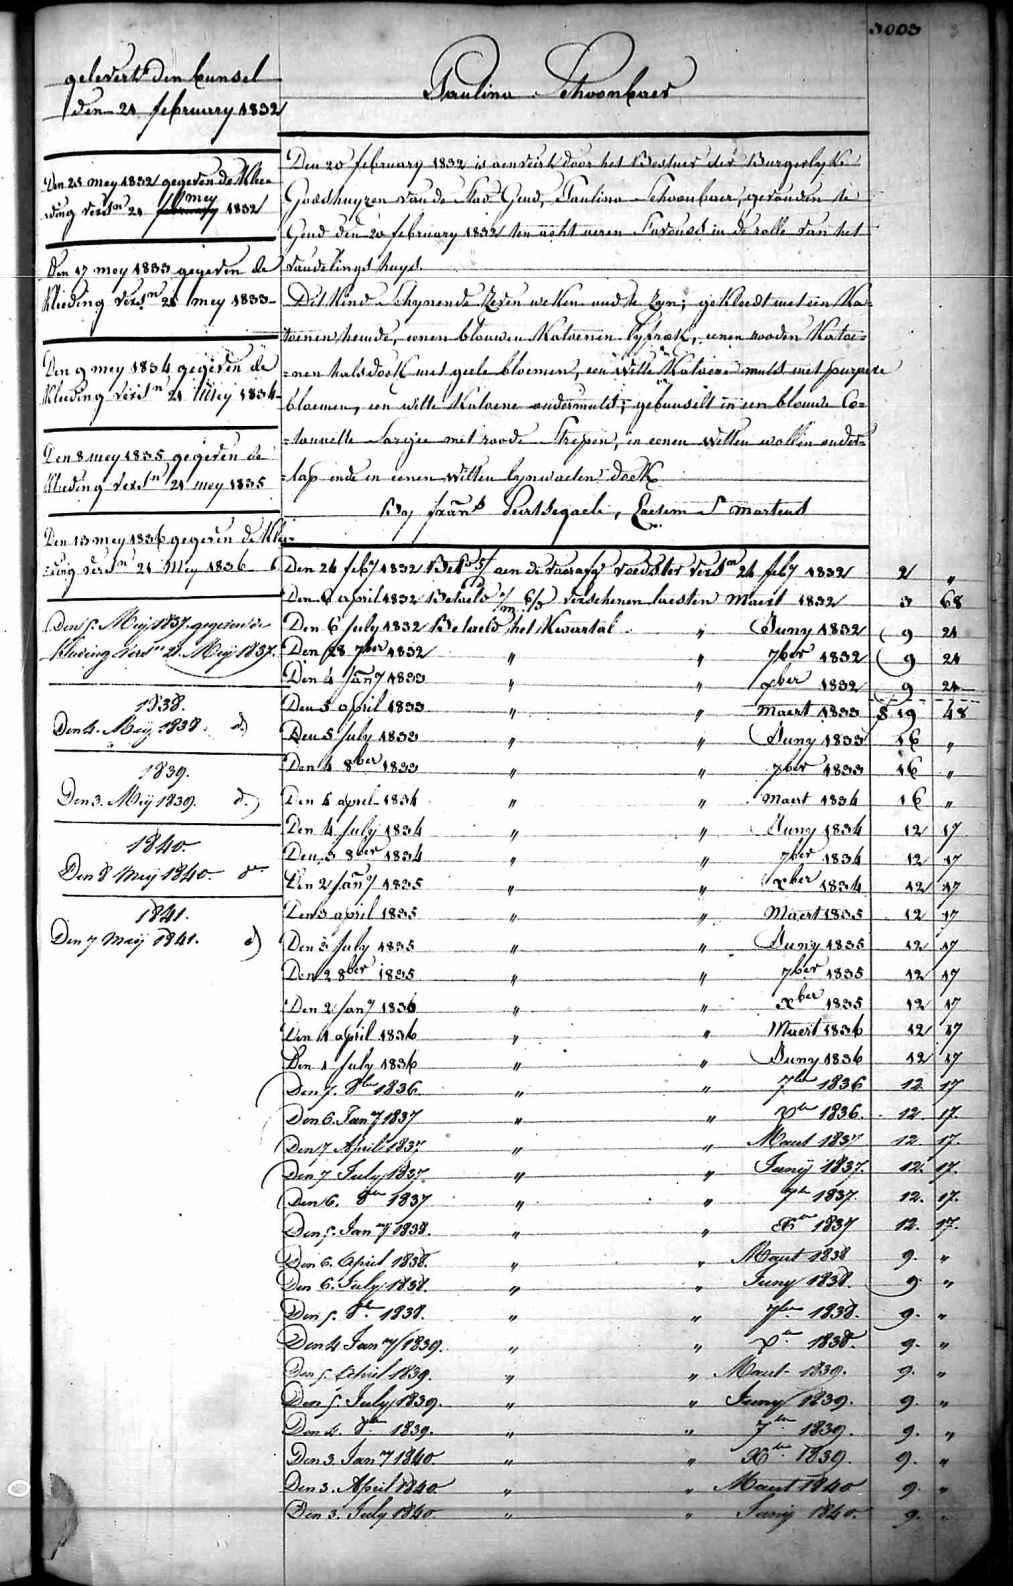 3003
Paulina Schoonbaer
gelevert den bunsel
den 21 february 1832
Den 25 mey 1832 gegeven de klee-
ding verse.n 21 february mey 1832
Den 17 mey 1833 gegeven de
kleeding verse.n 21 mey 1833
Den 9 mey 1834 gegeven de
kleeding verse.n 21 Mey 1834
Den 8 mey 1835 gegeven de
kleeding verse.n 21 mey 1835
Den 13 mey 1836 gegeven de klee-
-ding verse.n 21 Mey 1836
Den 5. Meij 1837. gegeven de
kleeding verse.n 21. Meij 1837.
1838.
Den 4. Meij 1838. d.)
1839.
Den 3. Meij 1839. d.)
1840.
Den 8 Meij 1840.
1841.
Den 7 Meij 1841. d)
Den 20 february 1832 is aenveird door het Bestuer der Burgerlyke
Godshuyzen van de Stad Gend, Paulina Schoonbaer, gevonden te
Gend den 20 february 1832 ten acht ueren s'avonds in de rolle van het
vondelings huys.
Dit kind schynende zeven weken oud te zyn, gekleedt met een ka-
toenen hemde, eenen blauwen katoenen lyfrok, eenen rooden katoe-
-nen halsdoek met geele bloemen, een witte katoene muts met purpere
bloemen, een witte katoene ondermuts, gebunselt in een blauwe Co-
-tonnette sargie met roode strepen, in eenen witten wollen onder-
-lap ende in eenen witten lynwaeden doek
By
Den 24 feb.y 1832 Bet. aen de voorafg. voedster verse.n 24 feb.y 1832 2 "
Den 6 april 1832 Betaeld verschenen laesten Maert 1832 3 68
Den 6 July 1832 Betaeld het Kwartal " Juny 1832 9 21
Den 28 7ber 1832 " " 7ber 1832 9 21
Den 4 Jan.y 1833 " " xber 1832 9 21
Den 5 april 1833 " " Maert 1833 19 48
Den 5 July 1833 " " Juny 1833 16 "
Den 4 8ber 1833 " " 7ber 1833 16 "
Den 4 april 1834 " " Maert 1834 16 "
Den 4 July 1834 " " Juny 1834 12 17
Den 3 8ber 1834 " " 7ber 1834 12 17
Den 2 Jan.y 1835 " " xber 1834 12 17
Den 3 april 1835 " " Maert 1835 12 17
Den 3 July 1835 " " Juny 1835 12 17
Den 2 8ber 1835 " " 7ber 1835 12 17
Den 2 Jan.y 1836 " " xber 1835 12 17
Den 1 april 1836 " " Maert 1836 12 17
Den 1 July 1836 " " Juny 1836 12 17
Den 7. 8ber 1836. " " 7ber 1836 12 17
Den 6. Jan.y 1837 " " xber 1836 12. 17.
Den 7 April 1837. " " Maert 1837 12 17.
Den 7 July 1837. " " Junij 1837. 12. 17.
Den 6. 8ber 1837 " " 7ber 1837. 12. 17.
Den 5. Jan.y 1838. " " xber 1837 12. 17.
Den 6. April 1838. " " Maert 1838 9. "
Den 6. July 1838. " " Juny 1838. 9 "
Den 5. 8ber 1838. " " 7ber 1838. 9. "
Den 4 Jan.y 1839. " " xber 1838. 9. "
Den 5. April 1839. " " Maert 1839. 9. "
Den 5. July 1839. " " Juny 1839. 9. "
Den 4. 8ber 1839. " " 7ber 1839. 9. "
Den 3 Jan.y 1840. " " xber 1839. 9. "
Den 3. April 1840 " " Maert 1840 9. "
Den 3. July 1840. " " Junij 1840. 9. "